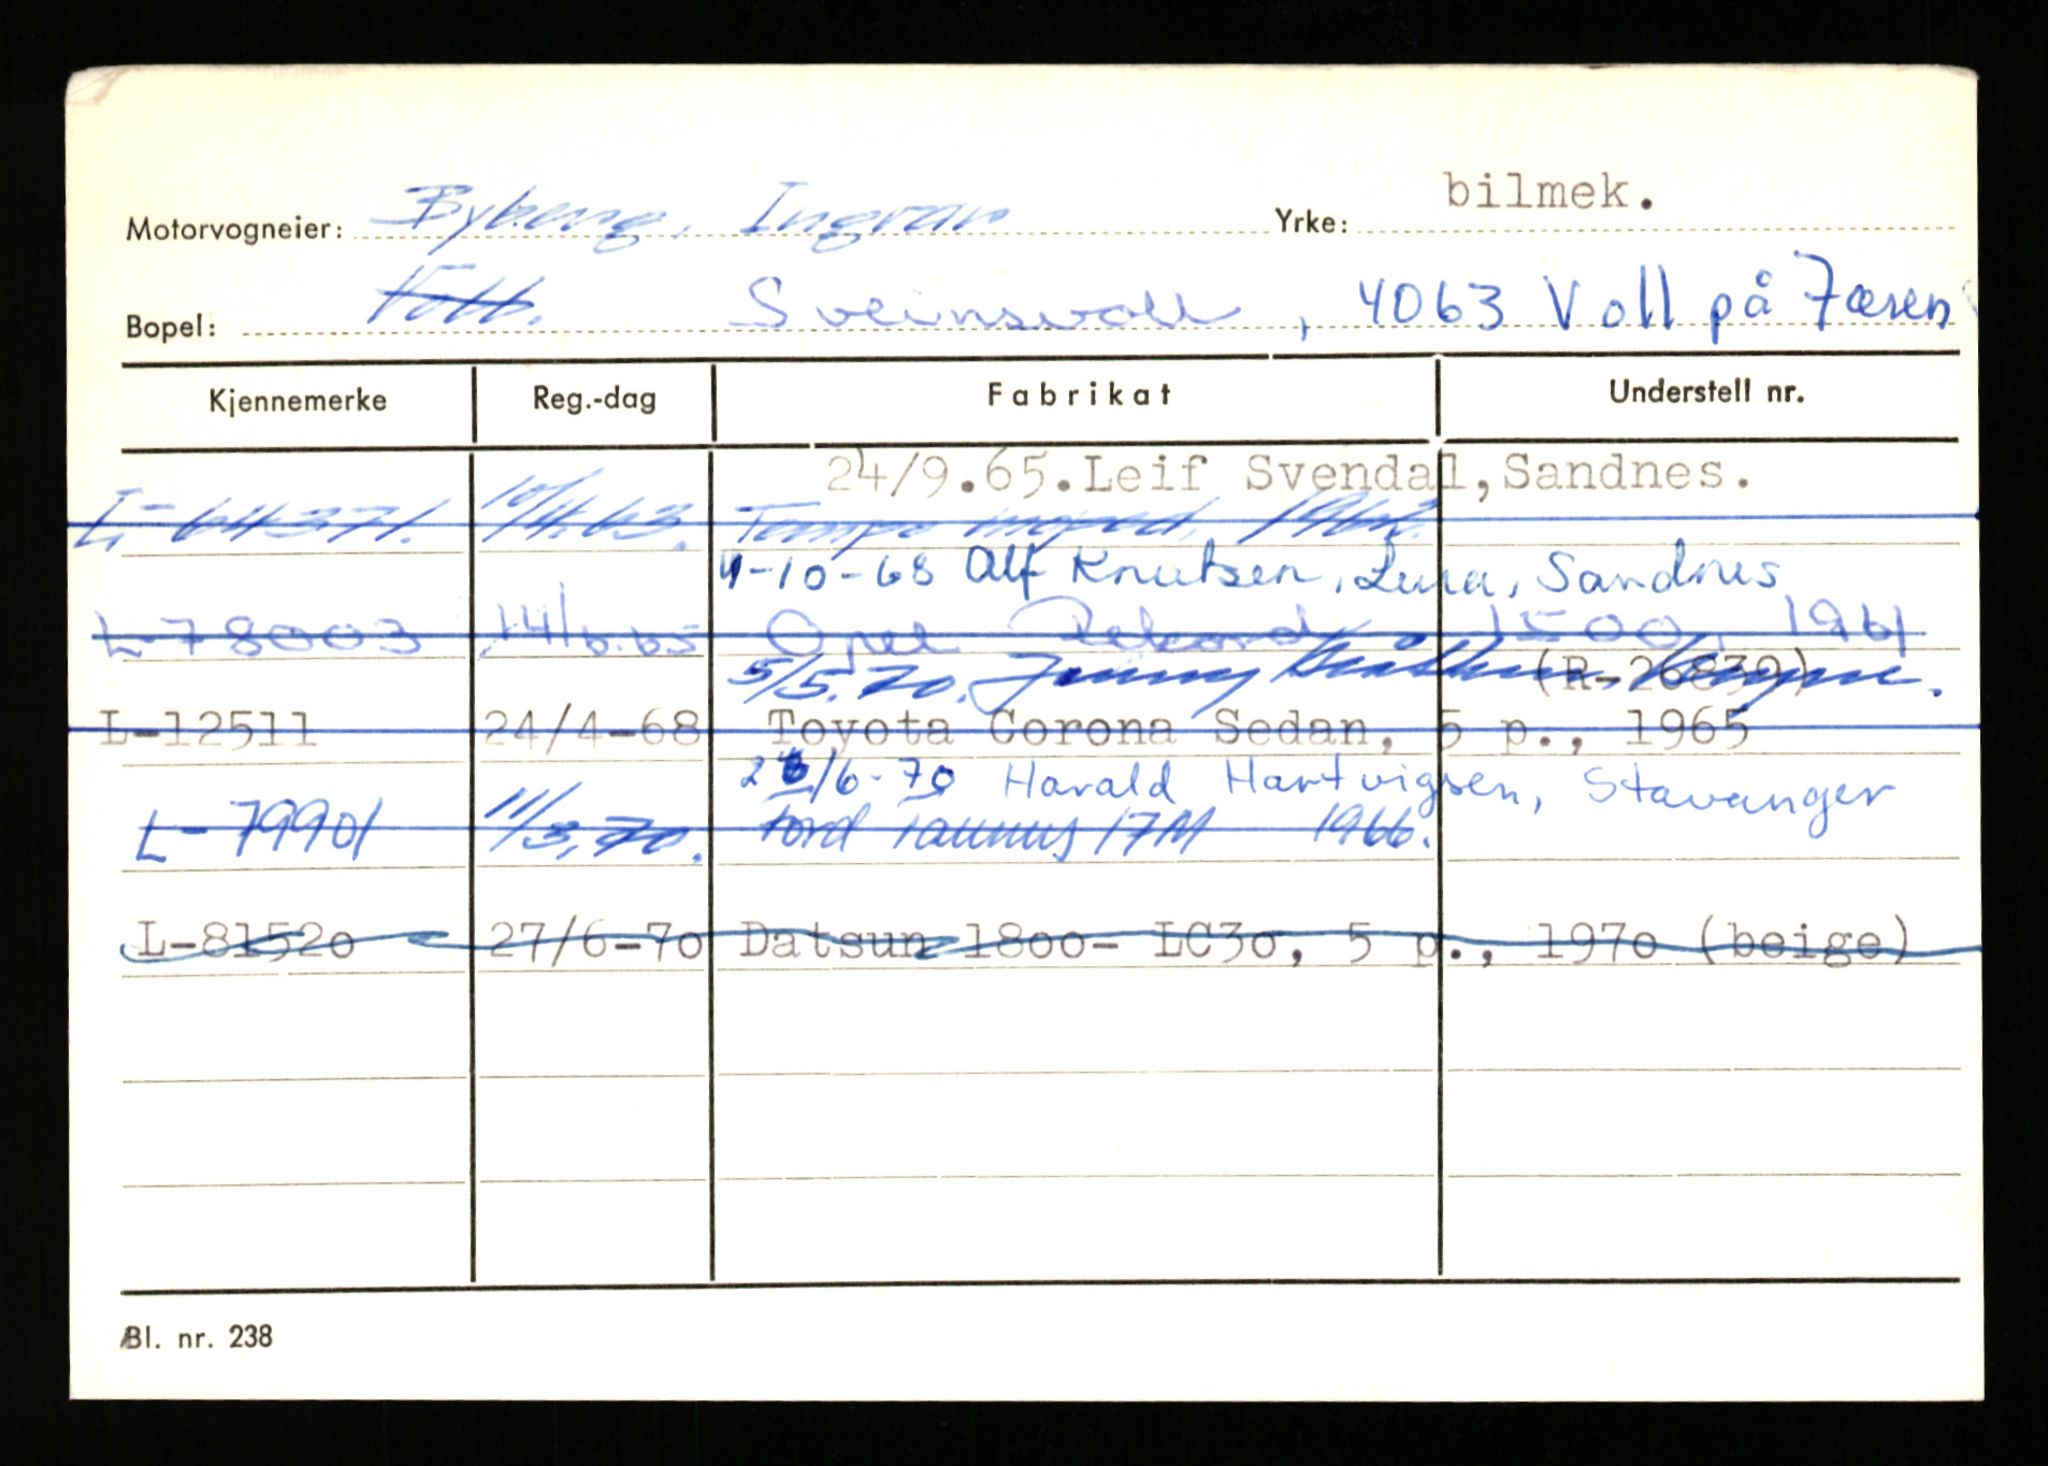 Motorvogneier: Byberg, Ingvar Yrke: bilmek.
Bopel: Voll. Sveinsvoll, 4063 Voll på Jæren
Kjennemerke Reg.-dag Fabrikat Understell nr.
24/9.65.Leif Svendal,Sandnes.
L-64371. 10/4.63. Tempo moped, 1962.
4-10-68 Alf Knutsen, Lura, Sandnes
L-78003 14/6.65 Opel Rekord 1500, 1961
5/5.70. Jenny (R-26839)
L-12511 24/4-68 Toyota Corona Sedan, 5 p., 1965
26/6-70 Harald Hartvigsen, Stavanger
L-79901 11/3.70. Ford Taunus 17M 1966.
L-81520 27/6-70 Datsun 1800- LC30, 5 p., 1970 (beige)
Bl. nr. 238